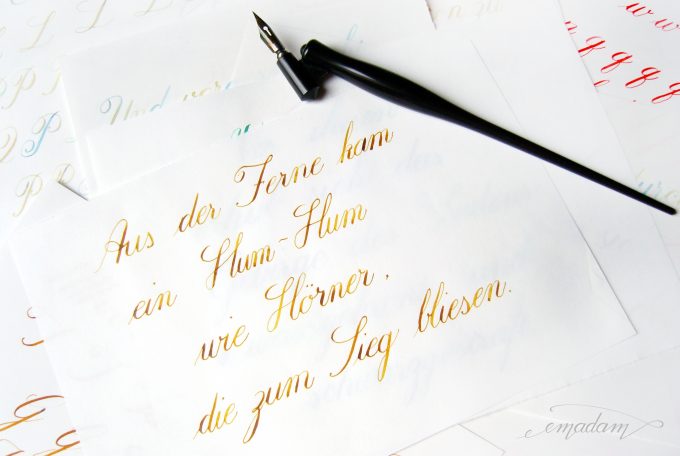 Und
Aus der Ferne kam
ein Hum-Hum
wie Hörner,
die zum Sieg bliesen.
emadam